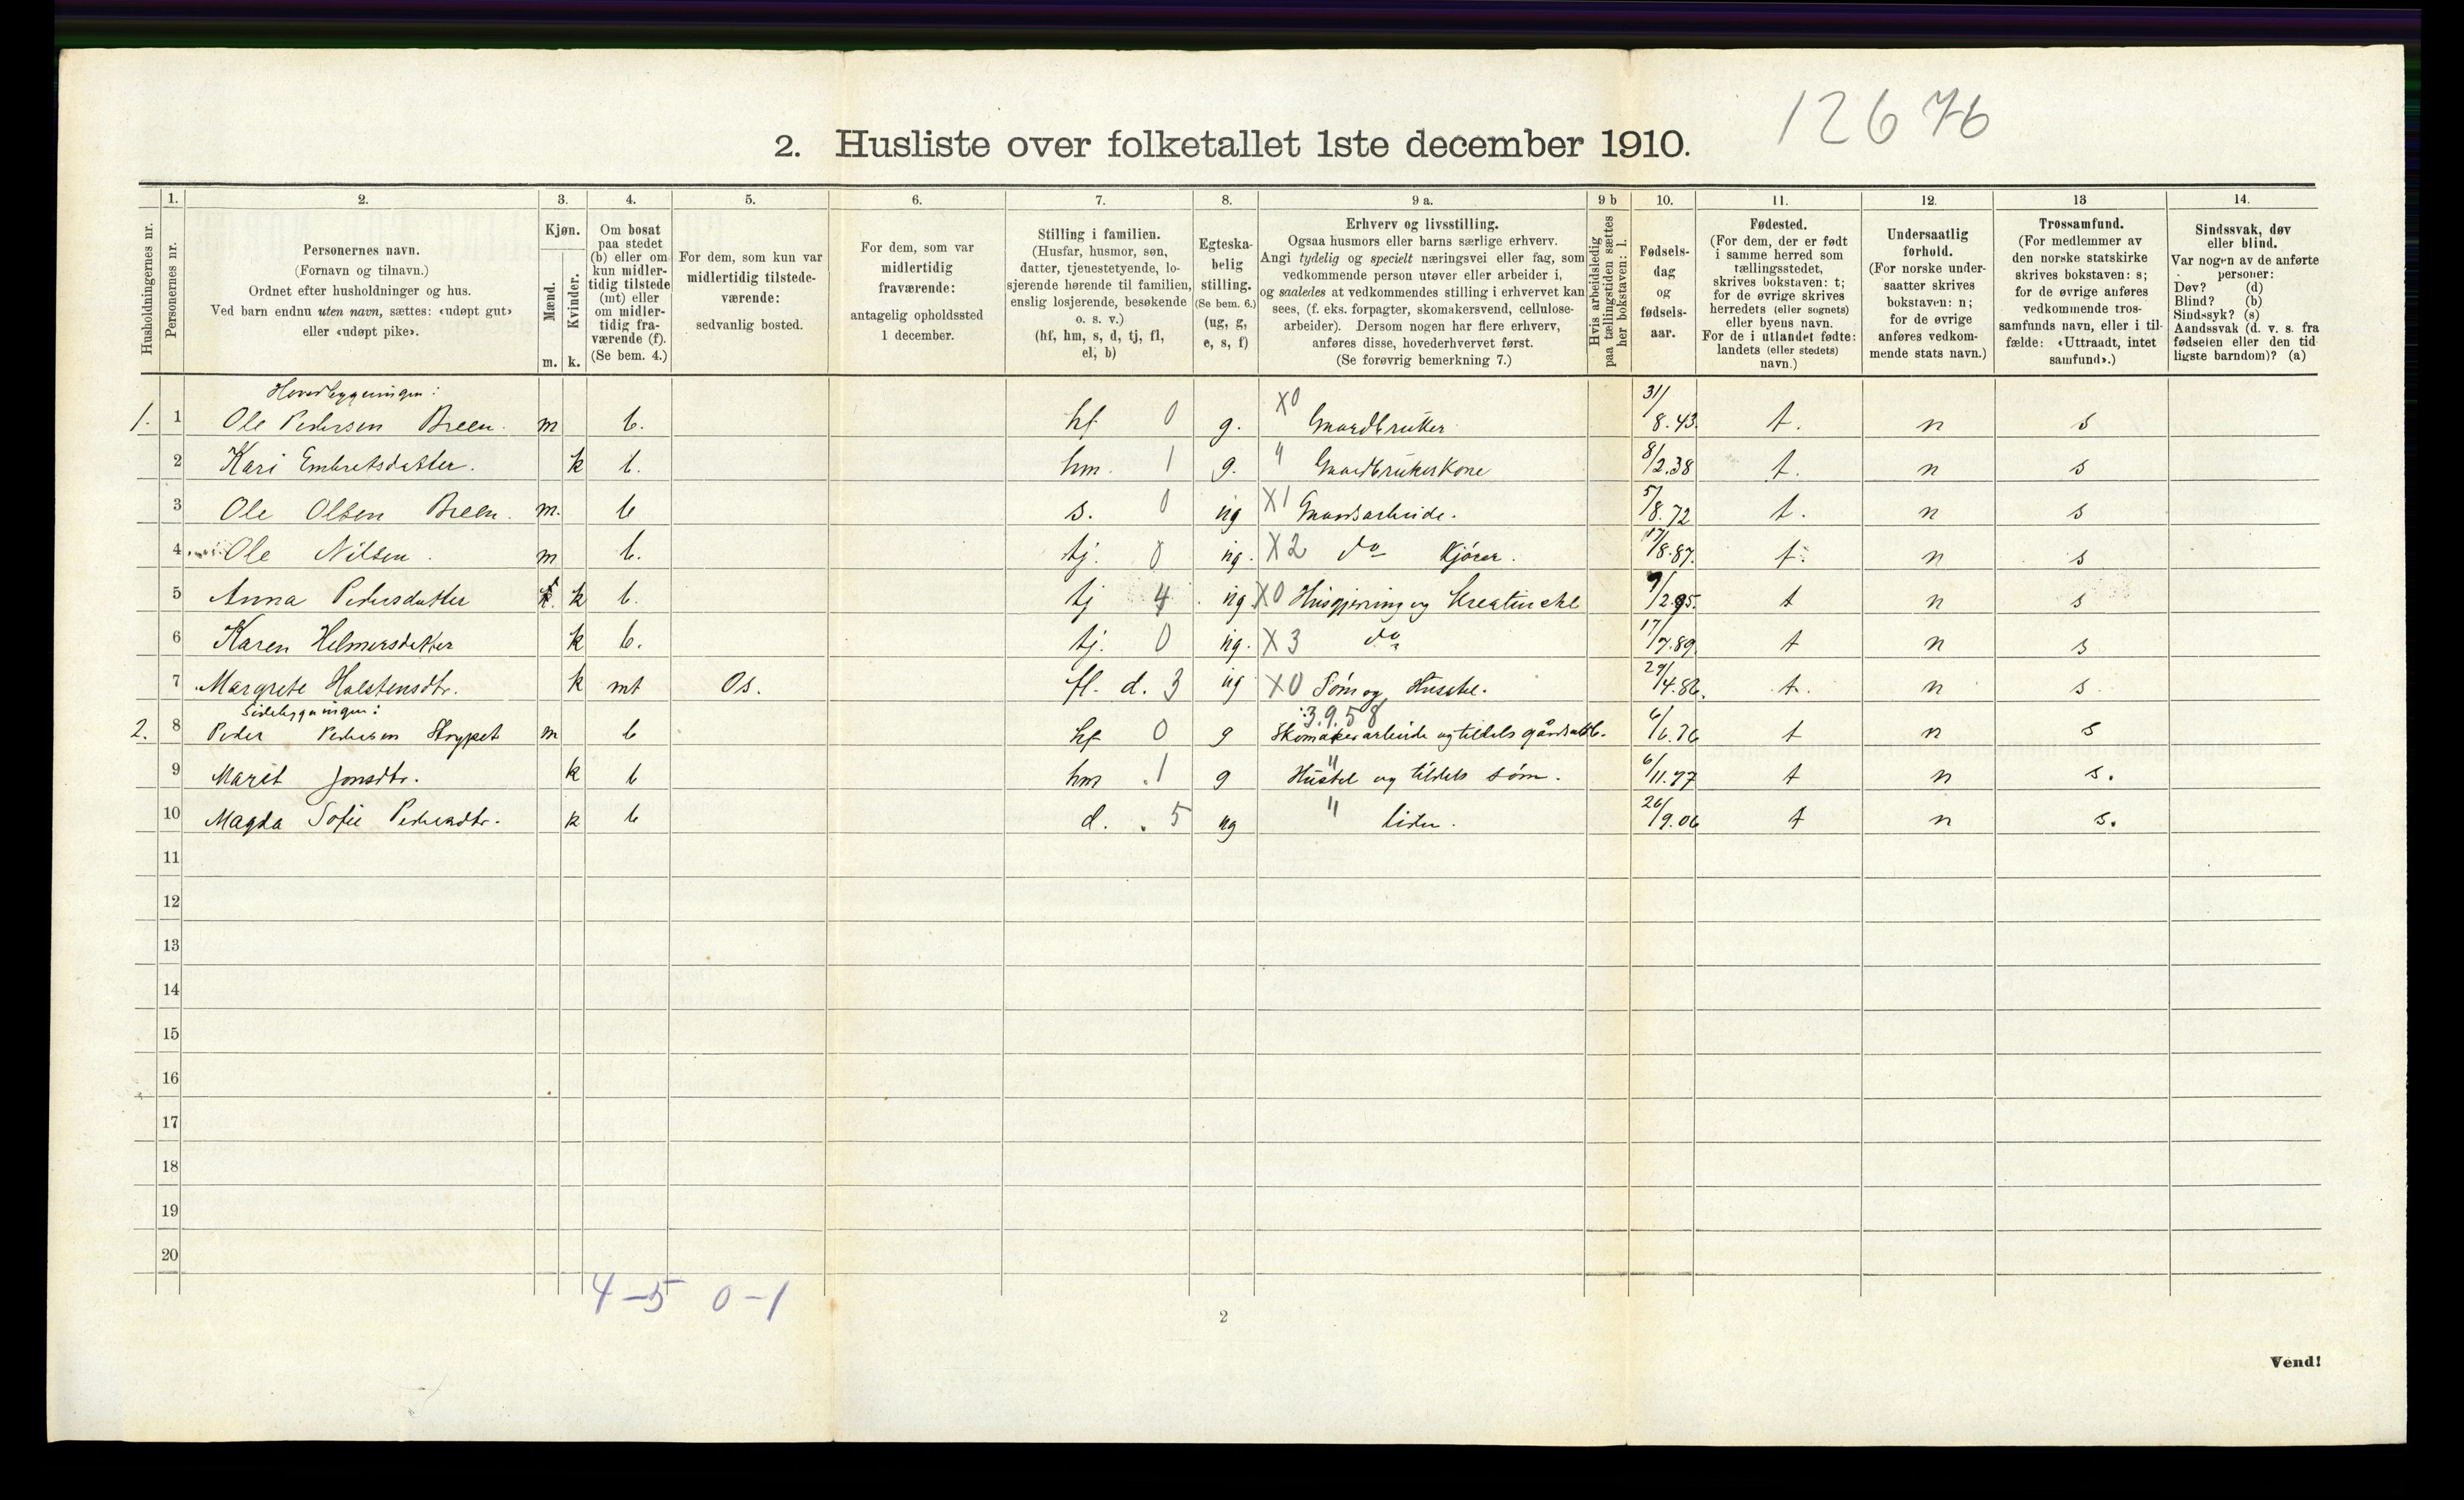 12676
2. Husliste over folketallet 1ste december 1910.
Husholdningernes nr.
1.
Personernes nr.
2.
Personernes navn.
(Fornavn og tilnavn.)
Ordnet efter husholdninger og hus.
Ved barn endnu uten navn, sættes: «udøpt gut»
eller «udøpt pike».
3.
Kjøn.
Mænd.
Kvinder.
m. k.
4.
Om bosat
paa stedet
(b) eller om
kun midler-
tidig tilstede
(mt) eller
om midler-
tidig fra-
værende (f).
(Se bem. 4.)
5.
For dem, som kun var
midlertidig tilstede-
værende:
sedvanlig bosted.
6.
For dem, som var
midlertidig
fraværende:
antagelig opholdssted
1 december.
7.
Stilling i familien.
(Husfar, husmor, søn,
datter, tjenestetyende, lo-
sjerende hørende til familien,
enslig losjerende, besøkende
o. s. v.)
(hf, hm, s, d, tj, fl,
el, b)
8.
Egteska-
belig
stilling.
(Se bem. 6.)
(ug, g,
e, s, f)
9 a.
Erhverv og livsstilling.
Ogsaa husmors eller barns særlige erhverv.
Angi tydelig og specielt næringsvei eller fag, som
vedkommende person utøver eller arbeider i,
og saaledes at vedkommendes stilling i erhvervet kan
sees, (f. eks. forpagter, skomakersvend, cellulose-
arbeider). Dersom nogen har flere erhverv,
anføres disse, hovederhvervet først.
(Se forøvrig bemerkning 7.)
9 b
Hvis arbeidsledig
paa tællingstiden sættes
her bokstaven: l.
10.
Fødsels-
dag
og
fødsels-
aar.
11.
Fødested.
(For dem, der er født
i samme herred som
tællingsstedet,
skrives bokstaven: t;
for de øvrige skrives
herredets (eller sognets)
eller byens navn.
For de i utlandet fødte:
landets (eller stedets)
navn.)
12.
Undersaatlig
forhold.
(For norske under-
saatter skrives
bokstaven: n;
for de øvrige
anføres vedkom-
mende stats navn.)
13
Trossamfund.
(For medlemmer av
den norske statskirke
skrives bokstaven: s;
for de øvrige anføres
vedkommende tros-
samfunds navn, eller i til-
fælde: «Uttraadt, intet
samfund».)
14.
Sindssvak, døv
eller blind.
Var nogen av de anførte
personer:
Døv? (d)
Blind? (b)
Sindssyk? (s)
Aandssvak (d. v. s. fra
fødselen eller den tid
ligste barndom)? (a)
Hovedbygningen:
1. 1 Ole Pedersen Breen. m b. hf 0 g. X0 Gaardbruker 31/8.43. t. n s
2 Kari Embretsdatter. k b. hm. 1 g. " Gaardbrukerkone 8/2.38 t. n s
3 Ole Olsen Breen. m. b s. 0 ug X1 Gaardsarbeide. 5/8.72 t. n s
4 Ole Nilsen. m b. tj. 0 ug. X2 do Kjører. 17/8.87. t. n s
5 Anna Pedersdatter k b. tj 4 ug X0 Husgjerning og Kreaturstel 9/2.95. t n s
6 Karen Helmersdatter k b. tj. 0 ug. X3 do 17/7.89. t n s
7 Margrete Halstensdtr. k mt Os. fl. d. 3 ug X0 Søm og Husstel. 29/4.86. t. n s.
Sidebygningen:
3.9.58
2. 8 Peder Pedersen Strypet m b hf 0 g Skomakerarbeide og tildels gårdsarb. 6/6.76 t n s
9 Marit Jonsdtr. k b hm .1 g " Husstel og tildels søm. 6/11.77 t n s.
10 Magda Sofie Pedersdtr. k b d. . 5 ug " liden. 26/9.06 t n s.
11
12
13
14
15
16
17
18
19
20
4-5 0-1
2
Vend!